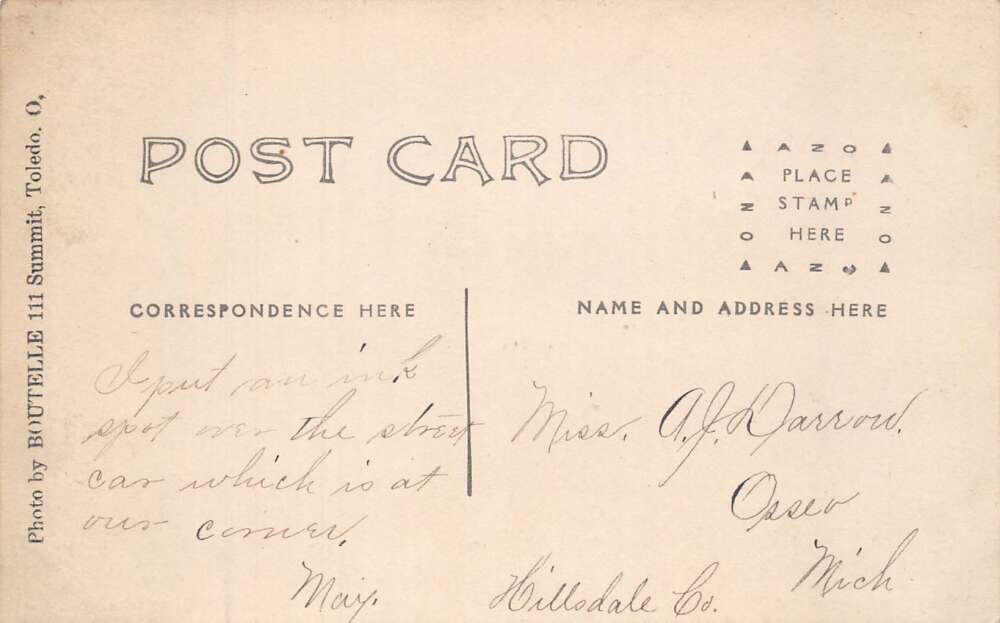 Photo by BOUTELLE 111 Summit, Toledo. O,
POST CARD
▲ AZO ▲
PLACE
STAMP
HERE
AZO
AZO
▲ AZO ▲
CORRESPONDENCE HERE
I put an ink
spot over the street
car which is at
our corner.
May.
NAME AND ADDRESS HERE
Miss. A.J. Darrow.
Osseo
Mich
Hillsdale Co.